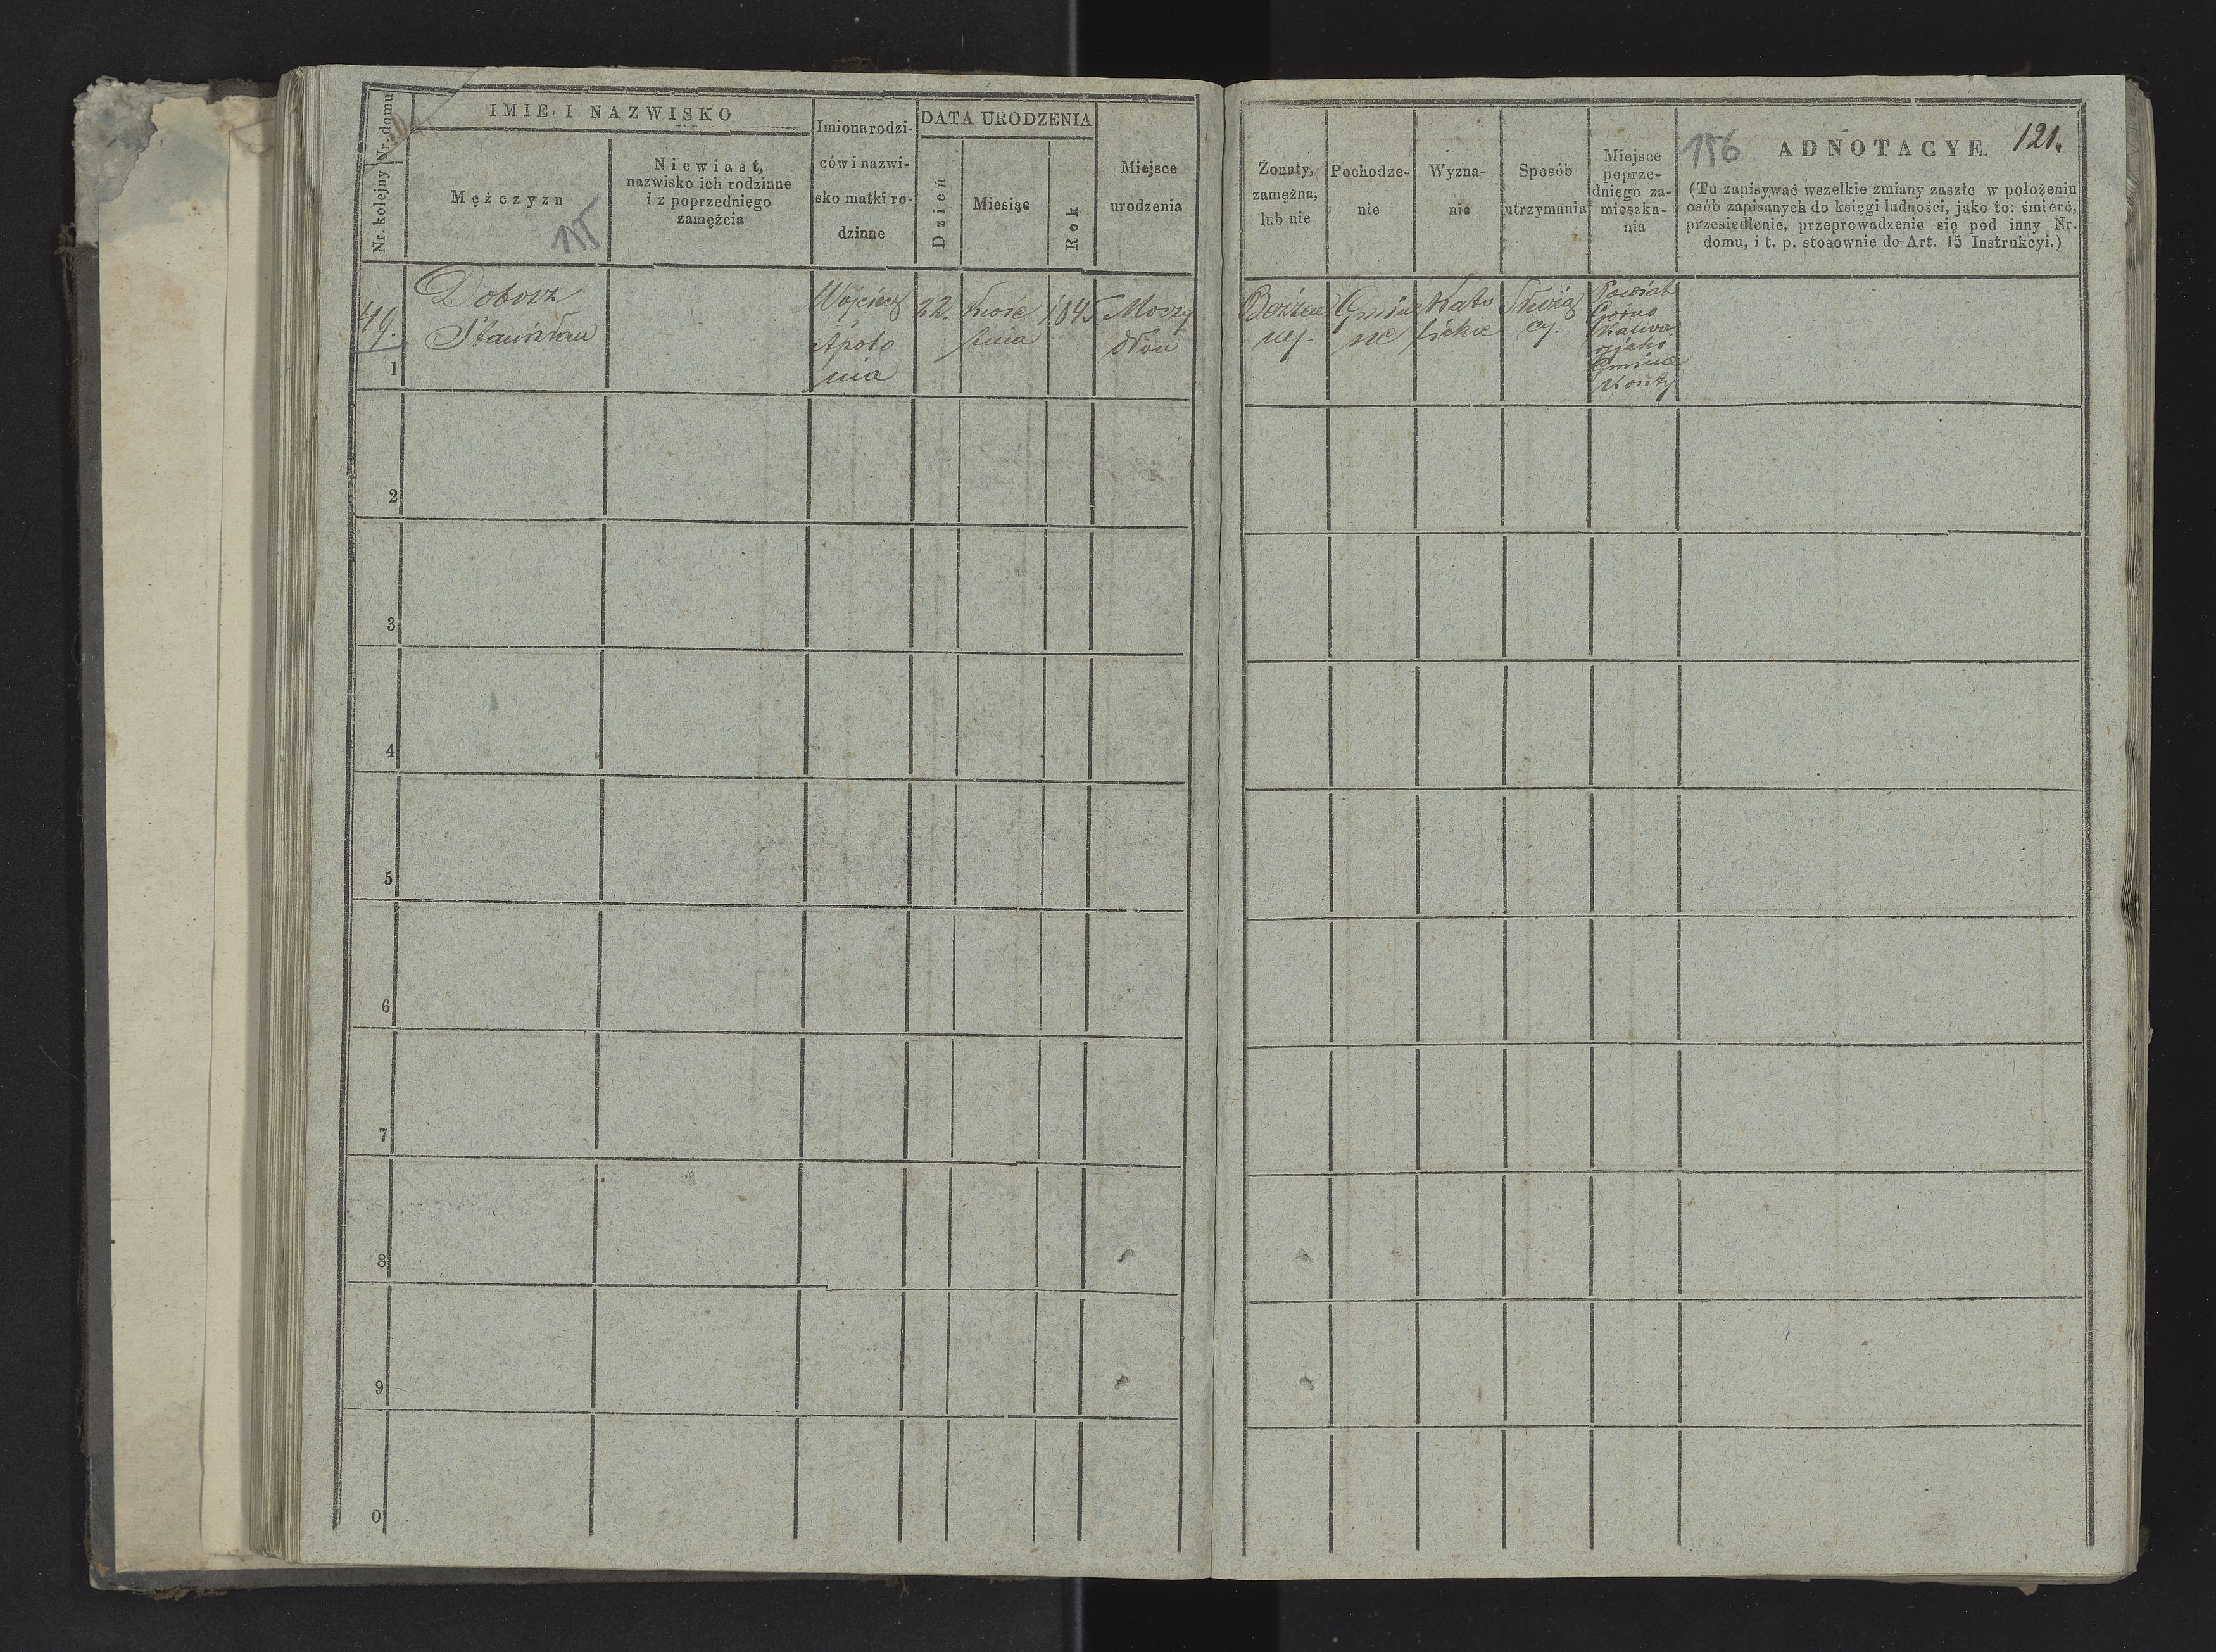 Nr. domu
Nr. kolejny
IMIE I NAZWISKO
Mężczyzn
155
Niewiast,
nazwisko ich rodzinne
i z poprzedniego
zamężcia
Imiona rodzi-
ców i nazwi-
sko matki ro-
dzinne
DATA URODZENIA
Dzień
Miesiąc
Rok
Miejsce
urodzenia
49.
1
Dobosz
Stanisław
Wojciech
Apolo
nia
22.
Kwie
tnia
1845
Moczy
dłow
2
3
4
5
6
7
8
9
0
Żonaty,
zamężna,
lub nie
Pochodze-
nie
Wyzna-
nie
Sposób
utrzymania
Miejsce
poprze-
dniego za-
mieszka-
nia
156
ADNOTACYE.
121.
(Tu zapisywać wszelkie zmiany zaszłe w położeniu
osób zapisanych do księgi ludności, jako to: śmierć,
przesiedlenie, przeprowadzenie się pod inny Nr.
domu, i t. p. stosownie do Art. 15 Instrukcyi.)
Bezżen
ny.
Gmin
ne
Kato
lickie
Służą
cy.
Powiat
Górno
Kalwa
ryjski
Gmina
Konty